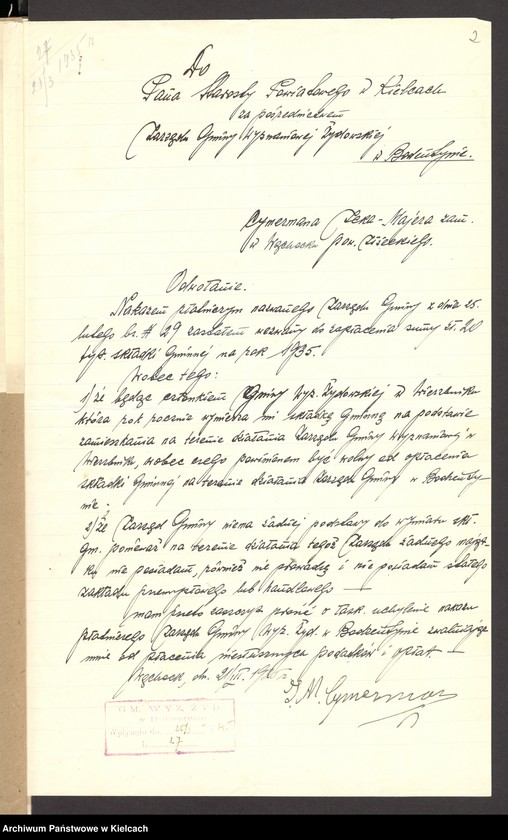 27
21/3 1935 r
2
Do
Pana Starosty Powiatowego w Kielcach
za pośrednictwem
Zarządu Gminy Wyznaniowej Żydowskiej
w Bodzentynie.
Cymermana Icka-Majera zam.
w Wąchocku pow. Iłżeckiego.
Odwołanie.
Nakazem płatniczym nazwanego Zarządu Gminy z dnia 25.
lutego br. # 29 zostałem wezwany do zapłacenia sumy zł. 20
tyt. składki Gminnej na rok 1935.
Wobec tego:
1/ że będąc członkiem Gminy Wyz. Żydowskiej w Wierzbniku
która rok rocznie wymierza mi składkę gminną na podstawie
zamieszkania na terenie działania Zarządu Gminy Wyznaniowej w
Wierzbniku, wobec czego powinienem być wolny od opłacenia
składki Gminnej na terenie działania Zarządu Gminy w Bodzenty
nie;
2/ że Zarząd Gminy niema żadnej podstawy do wymiaru skł.
gm. ponieważ na terenie działania tegoż Zarządu żadnego mająt-
ku nie posiadam, również nie prowadzę i nie posiadam stałego
zakładu przemysłowego lub handlowego —
mam przeto zaszczyt prosić o łask. uchylenie nakazu
płatniczego Zarządu Gminy Wyz. Żyd. w Bodzentynie zwalniając
mnie od płacenia niesłusznych podatków i opłat —
Wąchock, dn. 21/III. 1935 r.
I. M. Cymerman
GM. WYZ. ŻYD.
w Bodzentynie
Wpłynęło dn.
L. 27
Archiwum Państwowe w Kielcach